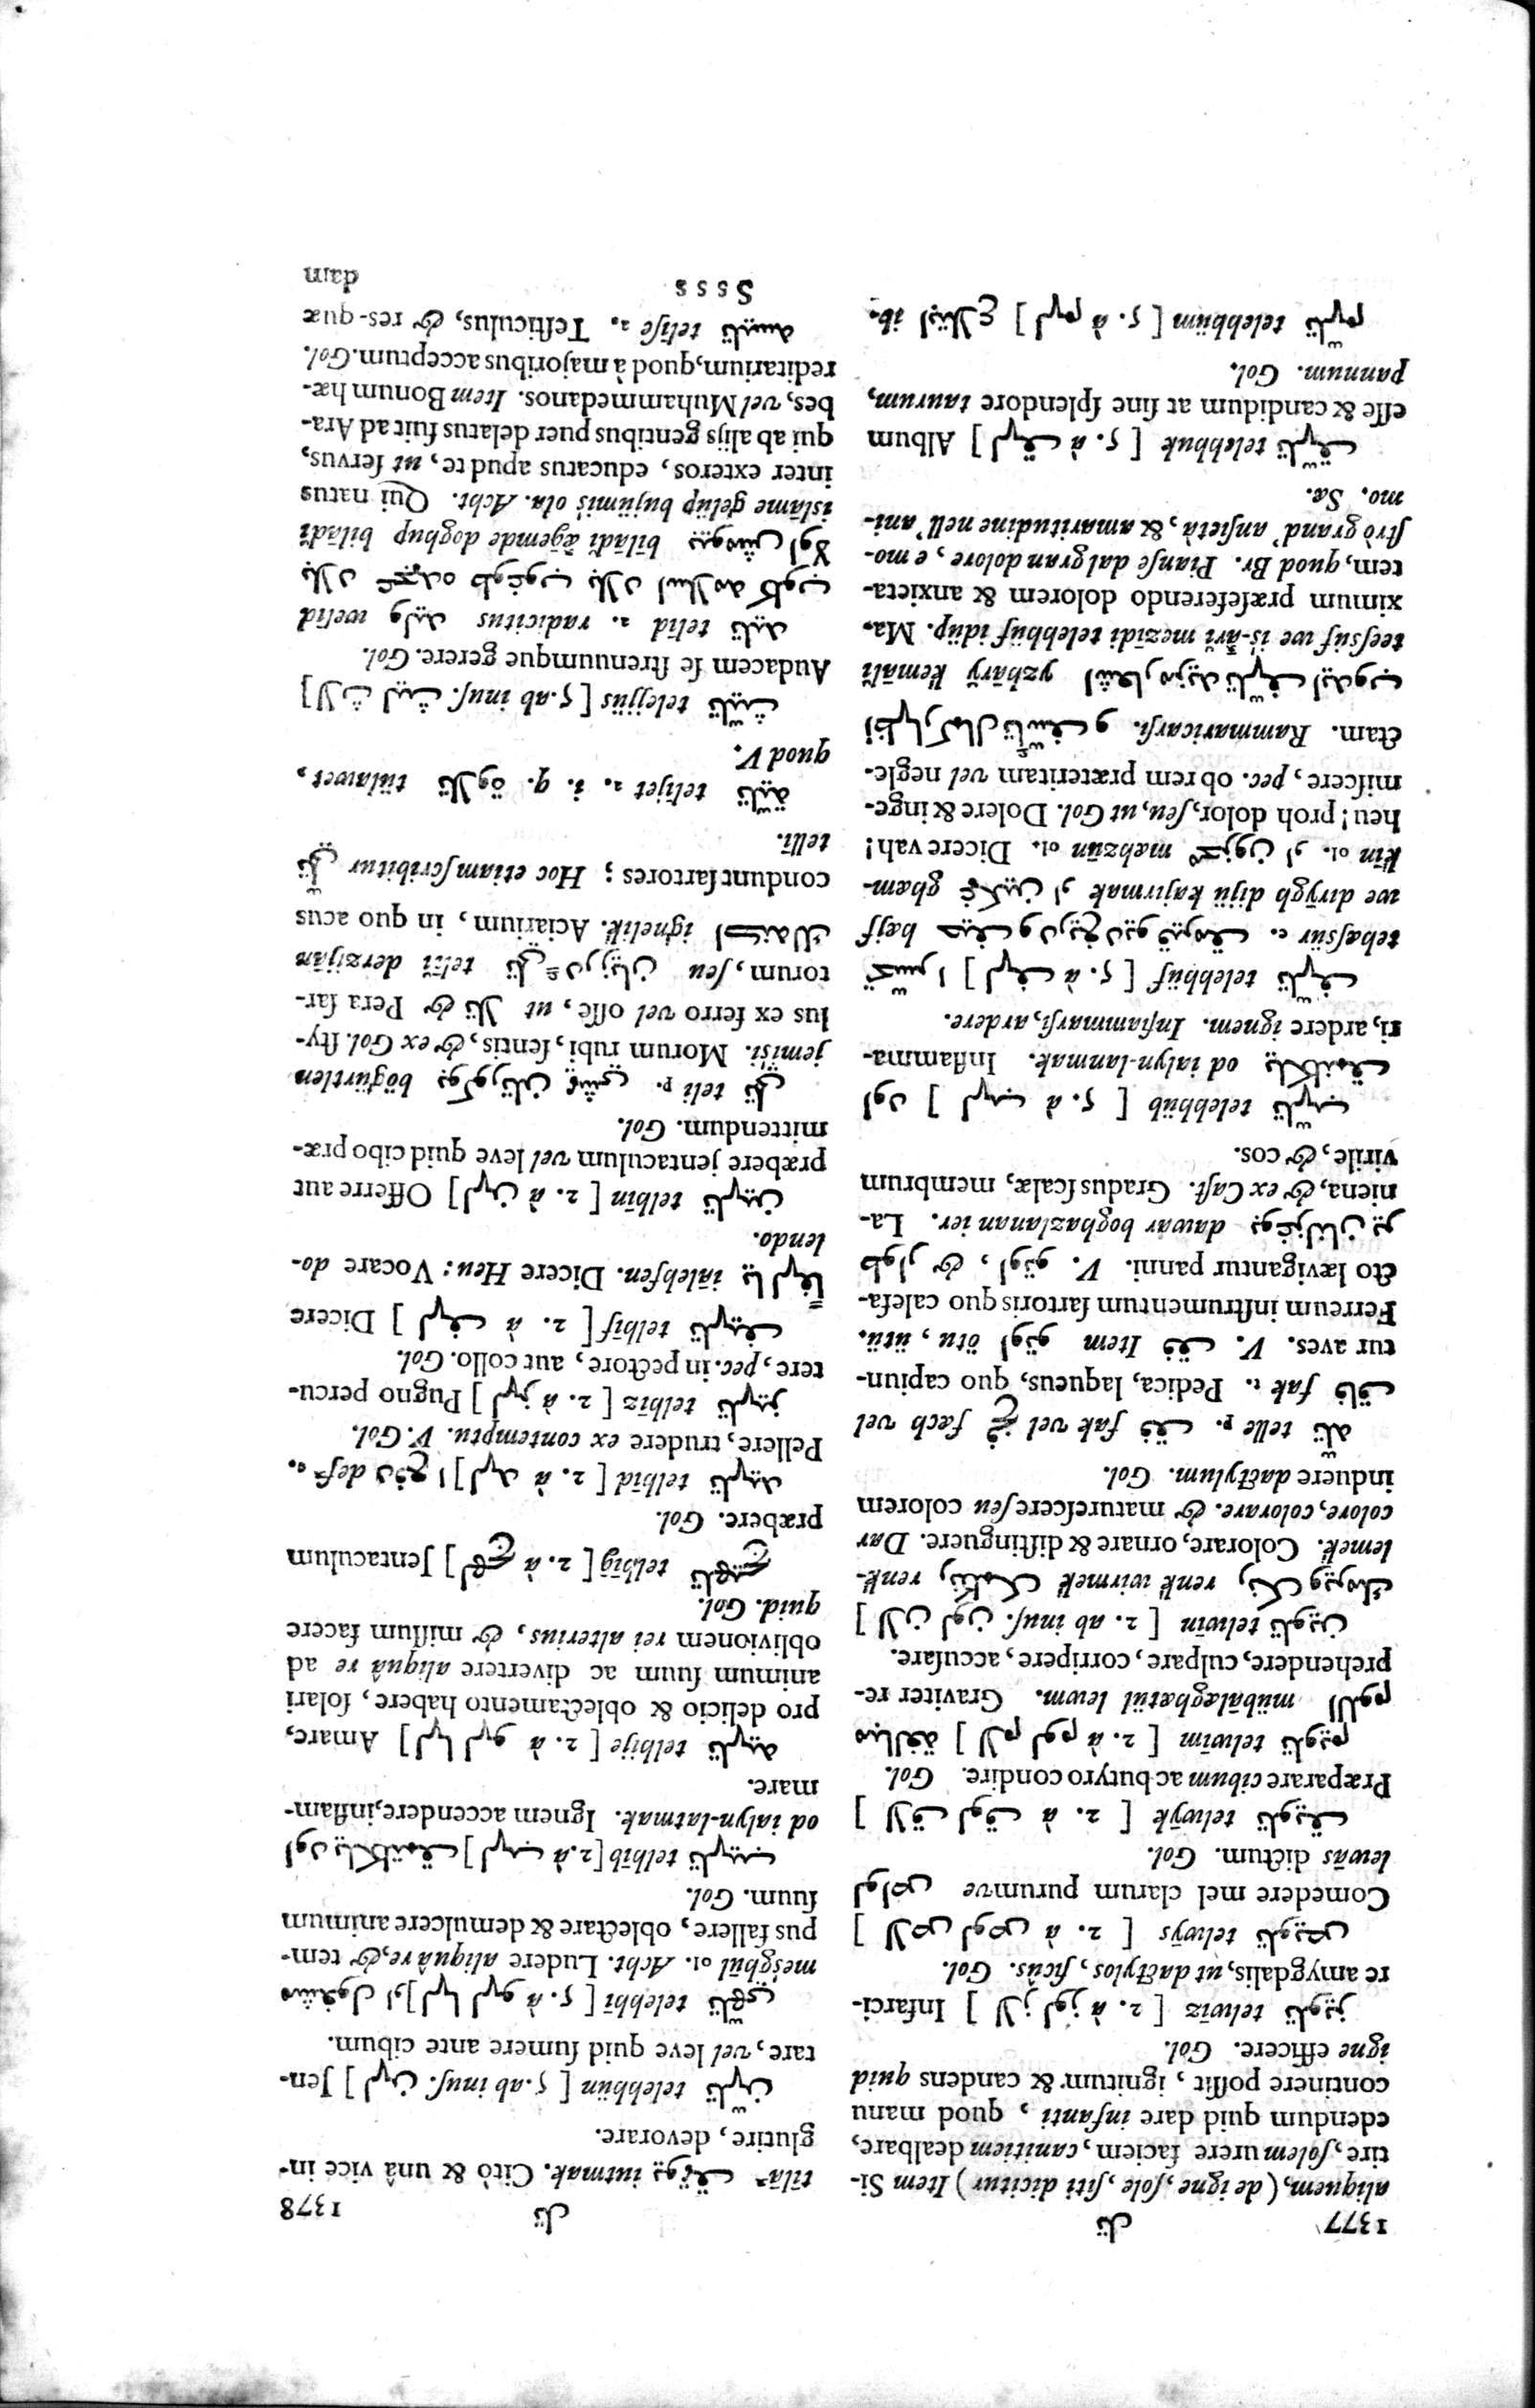 1377 تل
aliquem, (de igne, ſole, ſiti dicitur) Item Si-
tire, ſolem urere faciem, canitiem dealbare,
edendum quid dare infanti, quod manu
continere poſſit, ignitum & candens quid
igne efficere. Gol.
تلويز telwīz [2. à لوز لاز] Infarci-
re amygdalis, ut dactylos, ficûs. Gol.
تلويص telwȳs [2. à لوص لاص]
Comedere mel clarum purumve لواص
lewās dictum. Gol.
تلويق telwȳk [2. à لوق لاق]
Præparare cibum ac butyro condire. Gol.
تلويم telwīm [2. à لوم لام] مبالغة
اللوم mübālæghætül lewm. Graviter re-
prehendere, culpare, corripere, accuſare.
تلوين telwīn [2. ab inuſ. لون لان]
رنك ويرمك renk wirmek رنكلمك renk-
lemek. Colorare, ornare & diſtinguere. Dar
colore, colorare. & matureſcere ſeu colorem
induere dactylum. Gol.
تله telle p. فق fak vel فخ fæch vel
فاق fak t. Pedica, laqueus, quo capiun-
tur aves. V. فق Item اوتو ötu, ütü.
Ferreum inſtrumentum ſartoris quo calefa-
cto lævigantur panni. V. اوتو, & طوار
بوغزلنان ير dawar boghazlanan ier. La-
niena, & ex Caſt. Gradus ſcalæ, membrum
virile, & cos.
تلهب telehhüb [5. à لهب] اود
يالكلنمق od ialyn-lanmak. Inflamma-
ri, ardere ignem. Inflammarſi, ardere.
تلهف telehhüf [5. à لهف] ا تحسر
tehaſsür e. حيف ودريغ ديو قيرمق hæjf
we dirȳgh dijü kajirmak ا غمكين ghæm-
kīn ol. ا محزون mæhzūn ol. Dicere vah!
heu! proh dolor, ſeu, ut Gol. Dolere & inge-
miſcere, pec. ob rem præteritam vel negle-
ctam. Rammaricarſi. اظهار كمال تاسف و
اشعار مزيد تلهف ايدوب yzhāry kemāli
teeſsüf we iš-āri mezīdi telehhüf idüp. Ma-
ximum præſeferendo dolorem & anxieta-
tem, quod Br. Pianſe dal gran dolore, e mo-
ſtrò grand' anſietà, & amaritudine nell' ani-
mo. Sa.
تلهق telehhuk [5. à لهق] Album
eſſe & candidum at ſine ſplendore taurum,
pannum. Gol.
تلهم telehhüm [5. à لهم] ع ابتلاع ib-
تل 1378
tilā' يوتمق iutmak. Citò & unâ vice in-
glutire, devorare.
تلهن telehhün [5. ab inuſ. لهن] Jen-
tare, vel leve quid ſumere ante cibum.
تلهي telehhī [5. à لهو لها] او مشغول
mešghūl ol. Acht. Ludere aliquâ re, & tem-
pus fallere, oblectare & demulcere animum
ſuum. Gol.
تلهيب telhīb [2. à لهب] اود يالكلتمق
od ialyn-latmak. Ignem accendere, inflam-
mare.
تلهيه telhije [2. à لهو لها] Amare,
pro delicio & oblectamento habere, ſolari
animum ſuum ac divertere aliquâ re ad
oblivionem rei alterius, & miſſum facere
quid. Gol.
تلهيج telhīg [2. à لهج] Jentaculum
præbere. Gol.
تلهيد telhīd [2. à لهد] ا دفع def' e.
Pellere, trudere ex contemptu. V. Gol.
تلهيز telhīz [2. à لهز] Pugno percu-
tere, pec. in pectore, aut collo. Gol.
تلهيف telhīf [2. à لهف] Dicere
يا لهفا iālehfen. Dicere Heu: Vocare do-
lendo.
تلهين telhīn [2. à لهن] Offerre aut
præbere jentaculum vel leve quid cibo præ-
mittendum. Gol.
تلي teli p. بوكورتلن يمشي bögürtlen
jemiši. Morum rubi, ſentis, & ex Gol. ſty-
lus ex ferro vel oſſe, ut تلا & Pera ſar-
torum, ſeu تلي درزيان telii derzijān
اكنه لك ignelik. Aciarium, in quo acus
condunt ſartores; Hoc etiam ſcribitur تلي
telli.
تلية telijet a. i. q. تلاوة tülawet,
quod V.
تليث telejjüs [5. ab inuſ. ليث لاث]
Audacem ſe ſtrenuumque gerere. Gol.
تليد telīd a. radicitus وليد welīd
بلاد عجمده طوغوب بلاد اسلامه كلوب
بيومش اولا bilādi æǧemde doghup bilādi
islāme gelüp bujümiš ola. Acht. Qui natus
inter exteros, educatus apud te, ut ſervus,
qui ab aliis gentibus puer delatus fuit ad Ara-
bes, vel Muhammedanos. Item Bonum hæ-
reditarium, quod à majoribus acceptum. Gol.
تليسه telīſe a. Teſticulus, & res-quæ
Ssss dam